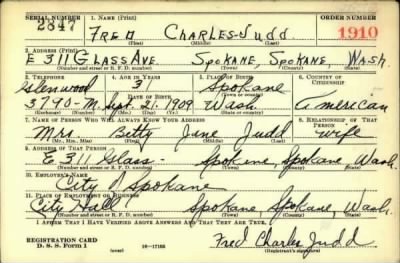 SERIAL NUMBER 1. NAME (Print) ORDER NUMBER
2847 FRED CHARLES JUDD 1910
(First) (Middle) (Last)
2. ADDRESS (Print)
E 311 GLASS AVE. SPOKANE, SPOKANE, WASH.
(Number and street or R. F. D. number) (Town) (County) (State)
3. TELEPHONE 4. AGE IN YEARS 5. PLACE OF BIRTH 6. COUNTRY OF CITIZENSHIP
Glenwood 3 Spokane
DATE OF BIRTH (Town or county)
3790-M. Sept. 21. 1909 Wash. American
(Exchange) (Number) (Mo.) (Day) (Yr.) (State or country)
7. NAME OF PERSON WHO WILL ALWAYS KNOW YOUR ADDRESS 8. RELATIONSHIP OF THAT PERSON
Mrs Betty Jane Judd wife
(Mr., Mrs., Miss) (First) (Middle) (Last)
9. ADDRESS OF THAT PERSON
E 311 Glass - Spokane, Spokane, Wash.
(Number and street or R. F. D. number) (Town) (County) (State)
10. EMPLOYER'S NAME
City Spokane
11. PLACE OF EMPLOYMENT OR BUSINESS
City Hall Spokane Spokane, Wash.
(Number and street or R. F. D. number) (Town) (County) (State)
I AFFIRM THAT I HAVE VERIFIED ABOVE ANSWERS AND THAT THEY ARE TRUE.
REGISTRATION CARD Fred Charles Judd
D. S. S. Form 1 (over) 16-17105 (Registrant's signature)